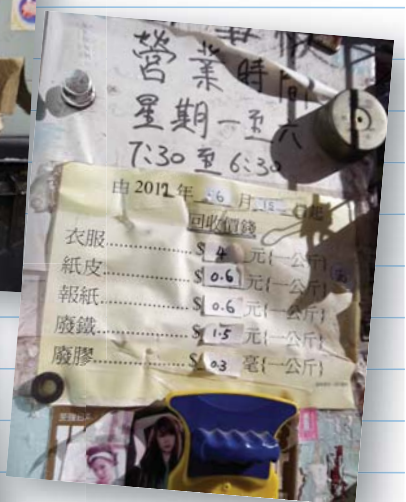 營業時間
星期一至六
7:30至6:30
由2012年6月15日起
回收價錢
衣服..............$ 4 元{一公斤}
紙皮..............$ 0.6 元{一公斤}
報紙..............$ 0.6 元{一公斤}
廢鐵..............$ 1.5 元{一公斤}
廢膠..............$ 0.3 毫{一公斤}